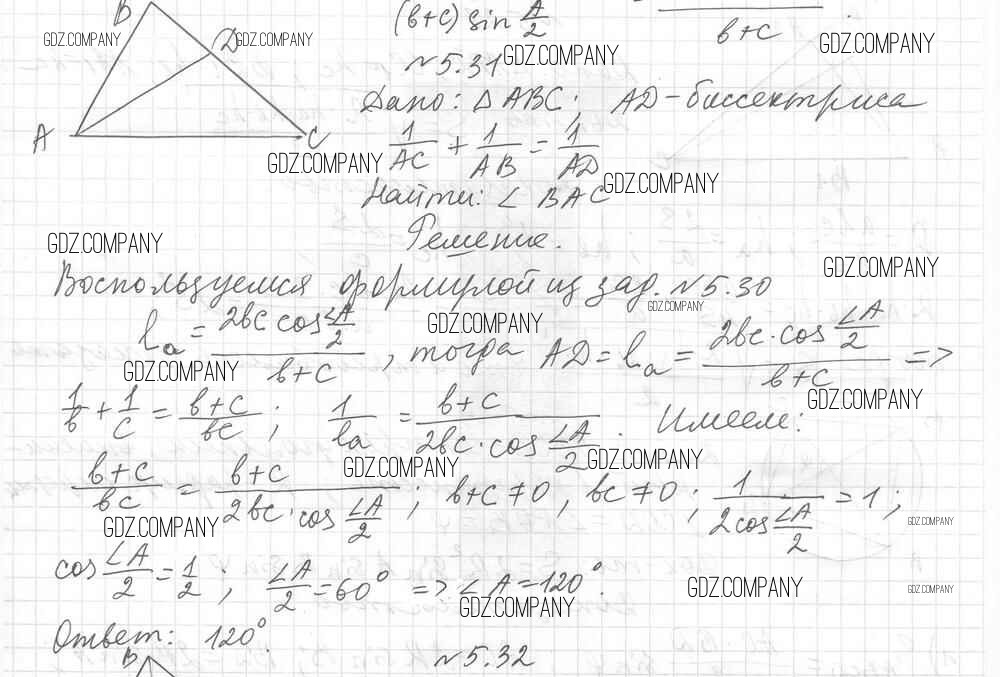 (b+c) sin A/2
b+c
B
GDZ.COMPANY
D
GDZ.COMPANY
GDZ.COMPANY
GDZ.COMPANY
№5.31
Дано: △ABC; AD-биссектриса
A
C
1/AC + 1/AB = 1/AD
GDZ.COMPANY
GDZ.COMPANY
Найти: ∠BAC
GDZ.COMPANY
Решение.
GDZ.COMPANY
Воспользуемся формулой из зад. №5.30
GDZ.COMPANY
GDZ.COMPANY
la = 2bc cos ∠A/2 / b+c, тогда AD = la = 2bc·cos ∠A/2 / b+c =>
GDZ.COMPANY
GDZ.COMPANY
1/b + 1/c = b+c/bc; 1/la = b+c / 2bc·cos ∠A/2. Имеем:
GDZ.COMPANY
GDZ.COMPANY
b+c/bc = b+c / 2bc·cos ∠A/2; b+c ≠ 0, bc ≠ 0; 1 / 2cos ∠A/2 = 1;
GDZ.COMPANY
GDZ.COMPANY
cos ∠A/2 = 1/2, ∠A/2 = 60° => ∠A = 120°.
GDZ.COMPANY
GDZ.COMPANY
GDZ.COMPANY
Ответ: 120°.
B
№5.32